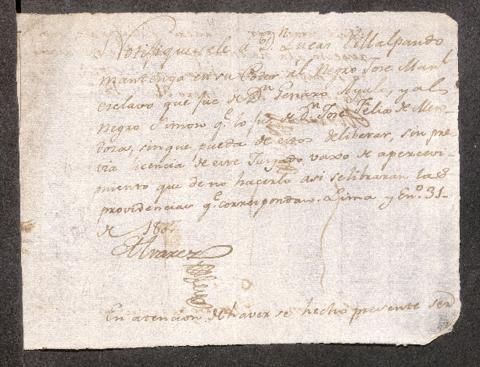 Notifiquesele a Dn. Lucas Villalpando
mantenga en su Poder al Negro Jose Manl.
esclavo que fue de Dn. Genaro Ayala, y al
negro Simon qe. lo fue de Dn. Jose Felix de Men-
doza, sin que pueda de estos deliberar, sin pre-
via licencia de este Juzgado vaxo de apercevi-
miento que de no hacerlo asi se libraran las
providencias qe. correspondan. Lima y Eno. 31
de
Alvarez
En atencion de haver se hecho presente ser